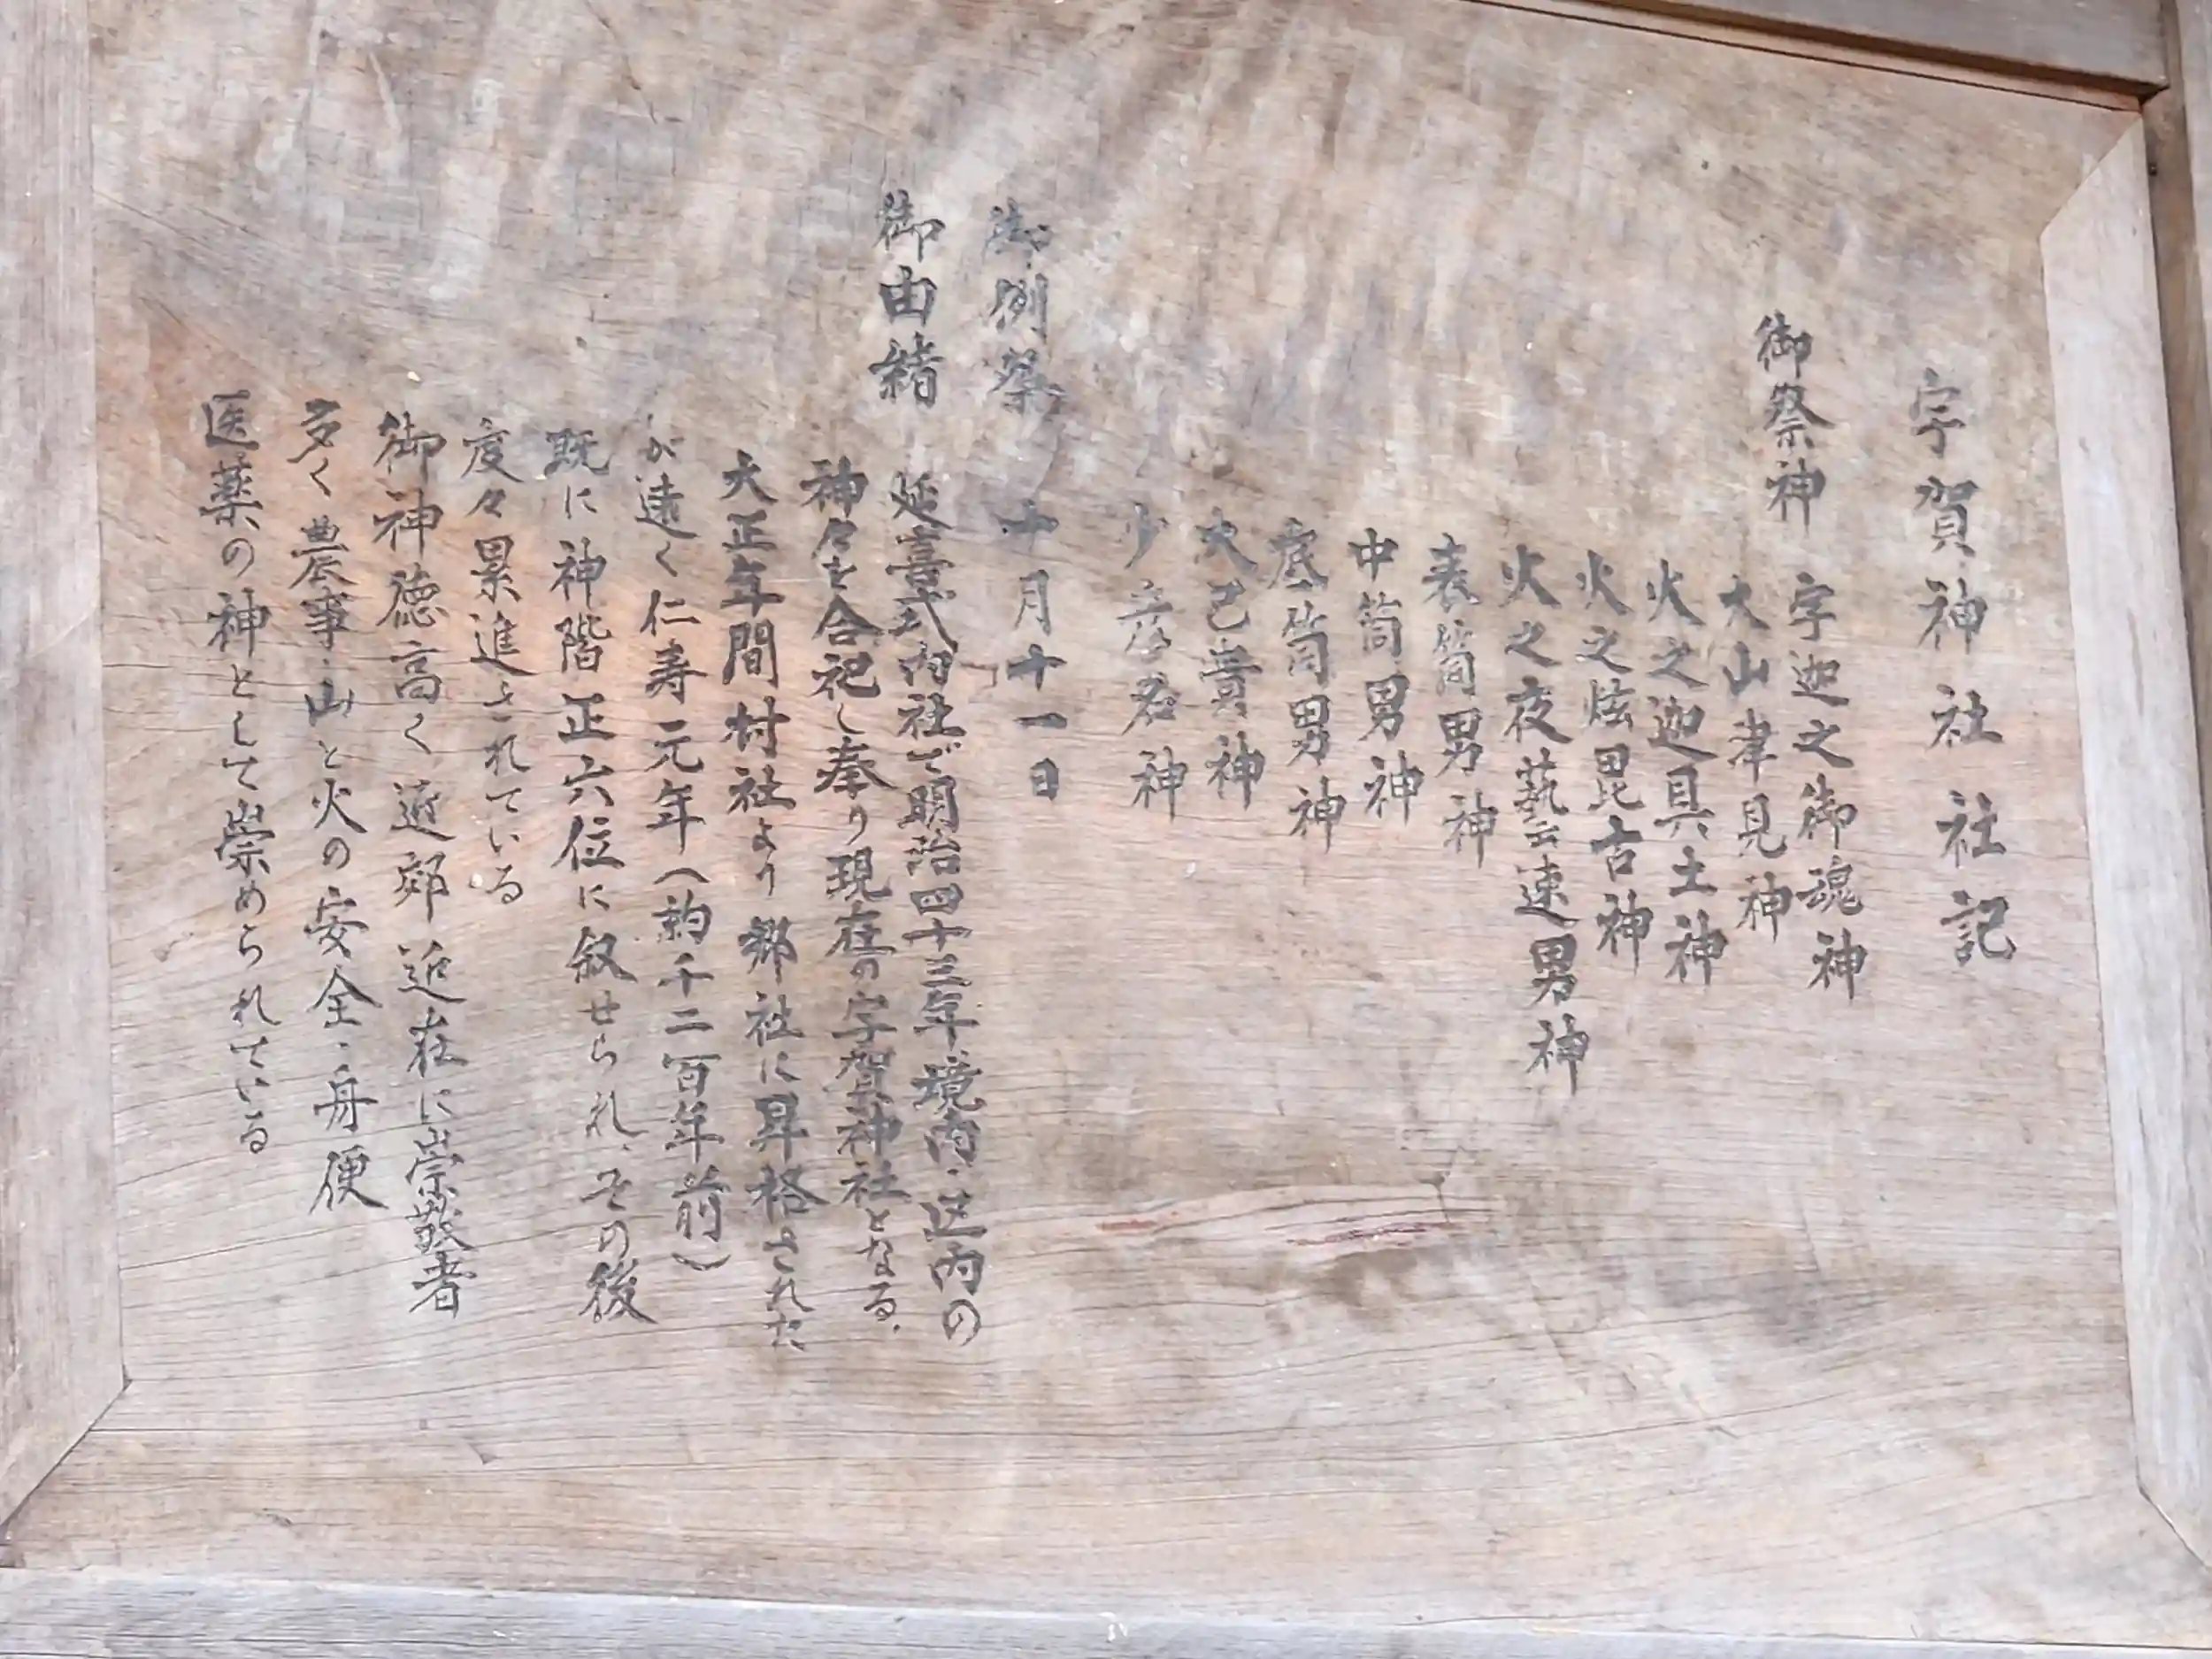 宇賀神社社記
御祭神 宇迦之御魂神
大山津見神
火之迦具土神
火之炫毘古神
火之夜藝速男神
表筒男神
中筒男神
底筒男神
大己貴神
少彦名神
御例祭 十月十一日
御由緒 延喜式内社で明治四十三年境内、区内の
神々を合祀し奉り現在の宇賀神社となる、
大正年間村社より郷社に昇格された
が遠く仁寿元年(約千二百年前)
既に神階正六位に叙せられ、その後
度々累進されている
御神徳高く近郷近在に崇敬者
多く農事、山と火の安全、舟便
医薬の神として崇められている